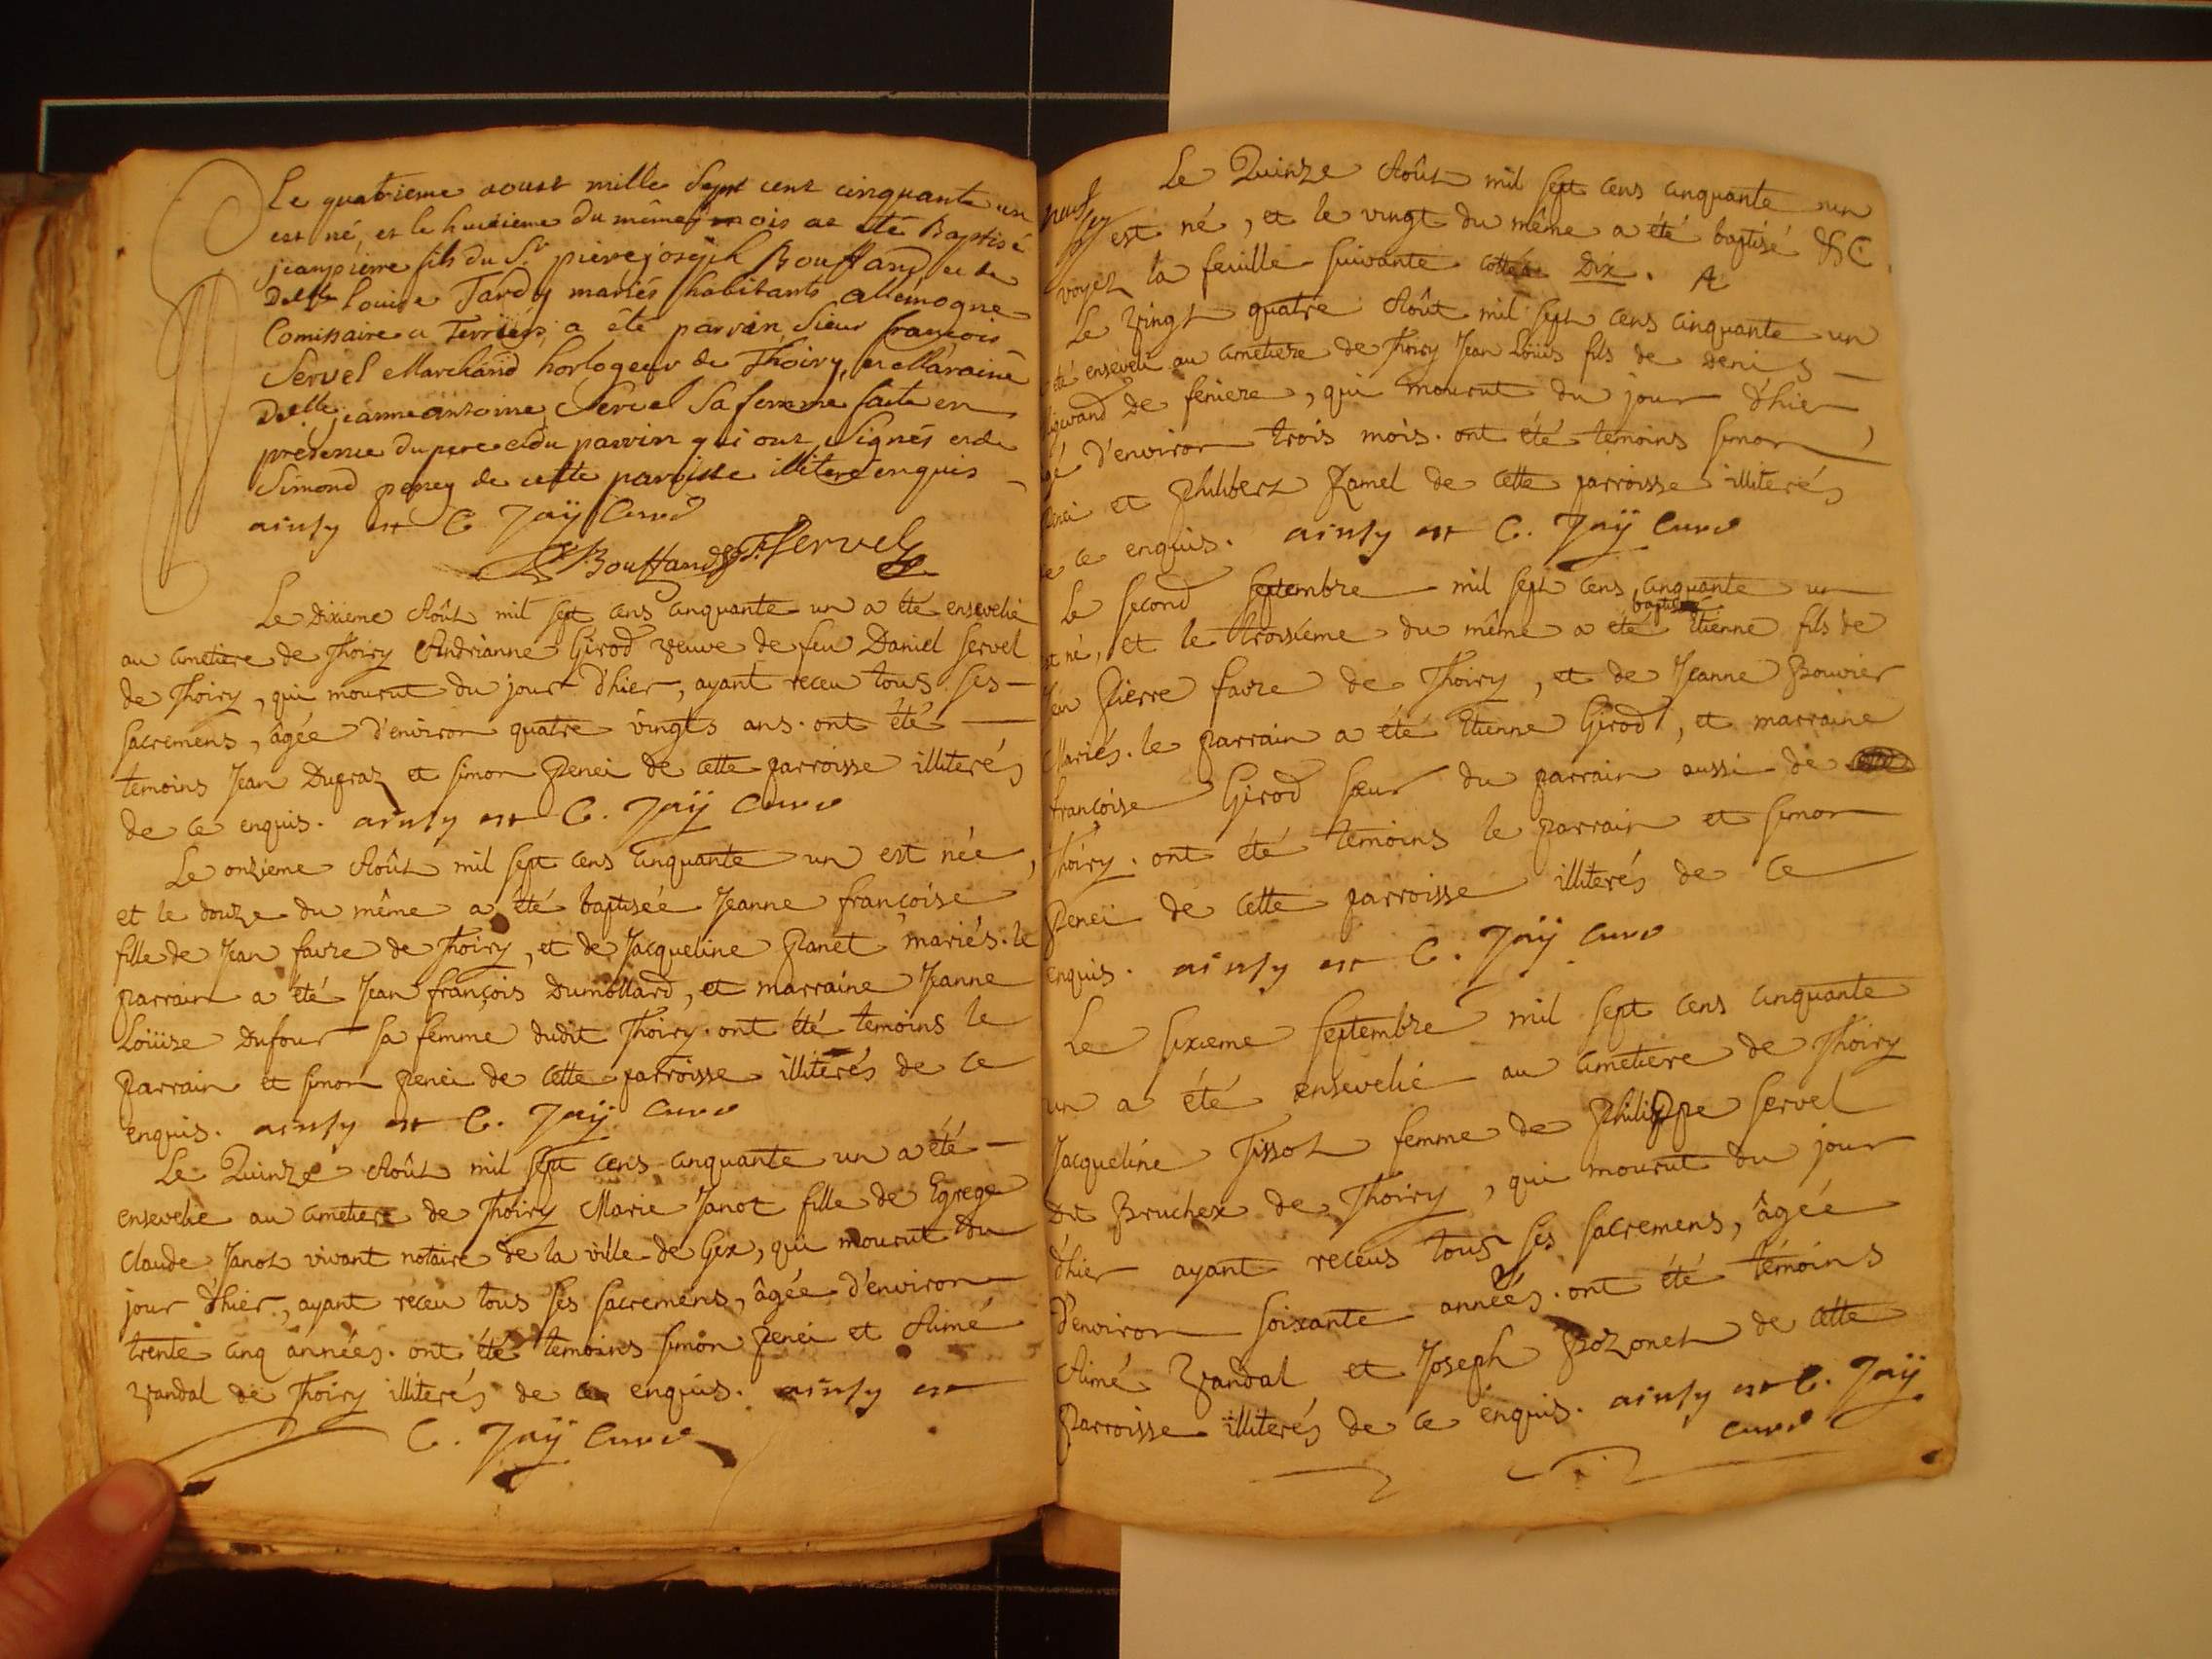 Le quatrieme aoust mille Sept cent cinquante un
est né, et le huitieme du même mois at eté Baptisé
jeanpierre fils du Sr. pierre joseph Bouffand et de
Delle Louise Tardy mariés habitants allemogne
Comissaire a Terriers, a été parrin Sieur françois
Servel Marchand horlogeur de Thoiry, et Maraine
Delle. jeanne antoine Servel Sa femme faite en
presence du pere et du parrin qui ont Signés et de
Simond peney de cette paroisse illiteré enquis
ainsy est C. Jaÿ Curé
Bouffand F. Servel
Le Dixieme Août mil sept cens cinquante un a été ensevelie
au cimetiere de Thoiry Andrianne Girod veuve de feu Daniel Servel
de Thoiry, qui mourut du jour d'hier, ayant receu tous ses
sacremens, âgée d'environ quatre vingts ans. ont été
temoins Jean Dupraz et Simon Penei de cette parroisse illiterés
de ce enquis. ainsy est C. Jaÿ Curé
Le onzieme Août mil sept cens cinquante un est née,
et le douze du même a été baptisée Jeanne françoise
fille de Jean favre de Thoiry, et de Jacqueline Panet mariés. le
parrain a été Jean françois Dumollard, et marraine Jeanne
Loüise Dufour sa femme dudit Thoiry. ont été temoins le
parrain et Simon Penei de cette parroisse illiterés de ce
enquis. ainsy est C. Jaÿ Curé
Le Quinze Août mil sept cens cinquante un a été
ensevelie au cimetiere de Thoiry Marie Janot fille de Egrege
Claude Janot vivant notaire de la ville de Gex, qui mourut du
jour d'hier, ayant receu tous ses sacremens, âgée d'environ
trente cinq années. ont été temoins Simon Penei et Aimé
Vandal de Thoiry illiterés de ce enquis. ainsy est
C. Jaÿ Curé
neuf
Le Quinze Août mil sept cens cinquante un
est né, et le vingt du même a été baptisé &C
voyez la feuille suivante cottée Dix. A
Le Vingt quatre Août mil sept cens cinquante un
été enseveli au cimetiere de Thoiry Jean Loüis fils de Denis
de feniere, qui mourut du jour d'hier,
gé d'environ trois mois. ont été temoins Simon
Penei et Philibert Ramel de cette parroisse illiterés
de ce enquis. ainsy est C. Jaÿ Curé
Le second Septembre mil sept cens cinquante un
est né, et le troisiéme du même a été baptisé Etienne fils de
Jean Pierre favre de Thoiry, et de Jeanne Bouvier
Mariés. le parrain a été Etienne Girod, et marraine
françoise Girod sœur du parrain aussi de
Thoiry. ont été temoins le parrain et Simon
Penei de cette parroisse illiterés de ce
enquis. ainsy est C. Jaÿ Curé
Le sixieme Septembre mil sept cens cinquante
un a été ensevelie au cimetiere de Thoiry
Jacqueline Tissot femme de Philippe Servel
Dit Bruchex de Thoiry, qui mourut du jour
d'hier ayant receus tous ses sacremens, âgée
d'environ soixante années. ont été témoins
Aimé Vandal et Joseph Bozonet de cette
Parroisse illiterés de ce enquis. ainsy est C. Jaÿ
curé